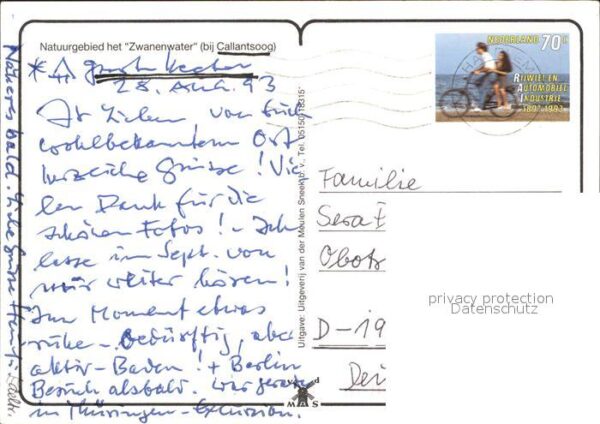 Natuurgebied het "Zwanenwater" (bij Callantsoog)
28. 93
An Lieben von Euch
wohlbekanntem Ort
herzliche Grüsse! Vie-
len Dank für die
schönen Fotos! - Ich
lasse im Sept. von
mir weiter hören!
Im Moment etwas
ruhe-bedürftig, aber
aktiv-Baden! + Berlin
Besuch alsbald. War gerade
in Thüringen-Exkursion.
Näheres bald. Liebe Grüsse
Uitgave: Uitgeverij van der Meulen Sneek b.v., Tel. 05150-18315
NEDERLAND 70c
RIJWIEL EN
AUTOMOBIEL
INDUSTRIE
1893-1993
Familie
Obot
D-19
privacy protection
Datenschutz
MAS